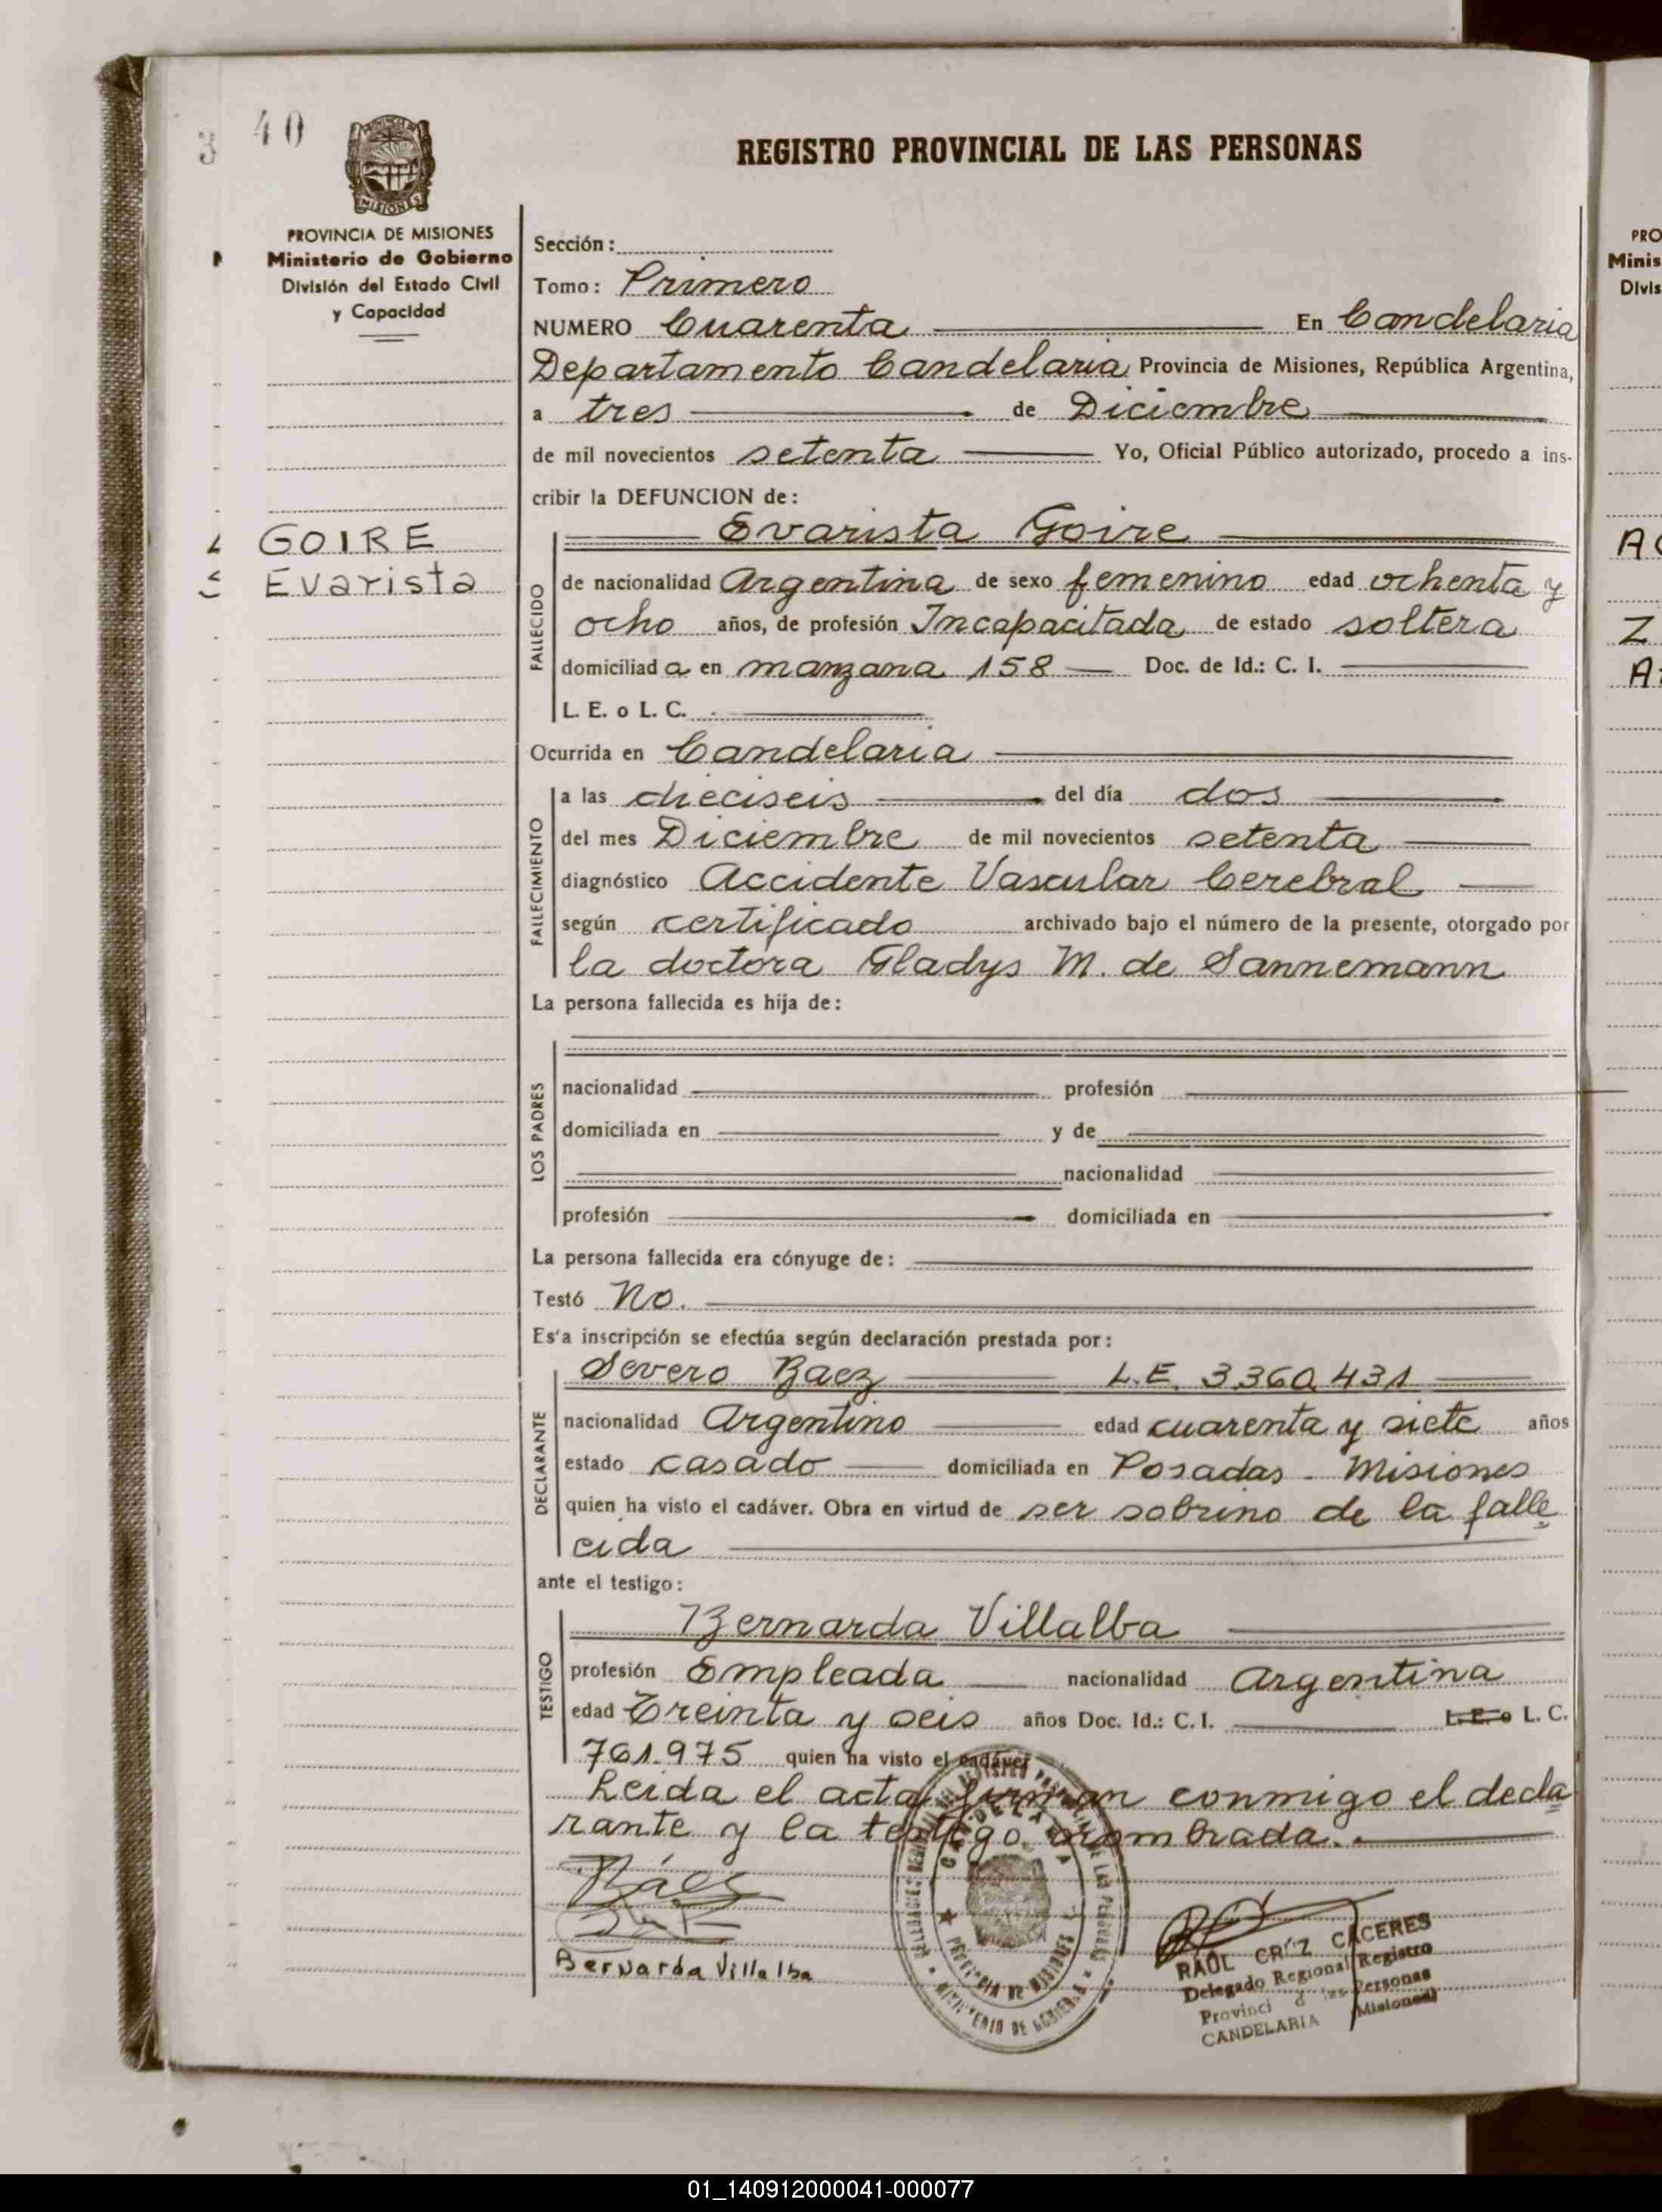 40
REGISTRO PROVINCIAL DE LAS PERSONAS
MISIONES
PROVINCIA DE MISIONES
Ministerio de Gobierno
División del Estado Civil
y Capacidad
GOIRE
Evarista
Sección:
Tomo: Primero
NUMERO Cuarenta En Candelaria
Departamento Candelaria Provincia de Misiones, República Argentina,
a tres de Diciembre
de mil novecientos setenta Yo, Oficial Público autorizado, procedo a ins-
cribir la DEFUNCION de:
FALLECIDO
Evarista Goire
de nacionalidad Argentina de sexo femenino edad ochenta y
ocho años, de profesión Incapacitada de estado soltera
domiciliad a en manzana 158 Doc. de Id.: C. I.
L. E. o L. C.
Ocurrida en Candelaria
FALLECIMIENTO
a las dieciseis del día dos
del mes Diciembre de mil novecientos setenta
diagnóstico Accidente Vascular Cerebral
según certificado archivado bajo el número de la presente, otorgado por
la doctora Gladys M. de Sannemann
La persona fallecida es hija de:
LOS PADRES
nacionalidad profesión
domiciliada en y de
nacionalidad
profesión domiciliada en
La persona fallecida era cónyuge de:
Testó No.
Es'a inscripción se efectúa según declaración prestada por:
DECLARANTE
Severo Baez L.E. 3.360.431
nacionalidad Argentino edad cuarenta y siete años
estado casado domiciliada en Posadas - Misiones
quien ha visto el cadáver. Obra en virtud de ser sobrino de la falle
cida
ante el testigo:
TESTIGO
Bernarda Villalba
profesión Empleada nacionalidad Argentina
edad Treinta y seis años Doc. Id.: C. I. L. E. o L. C.
761.975 quien ha visto el cadáver
Leida el acta firman conmigo el decla
rante y la testigo nombrada.
Báez
Bernarda Villalba
CANDELARIA
PROVINCIA DE MISIONES
MINISTERIO DE GOBIERNO
RAUL CRUZ CACERES
Delegado Regional Registro
Provinci d las Personas
CANDELARIA (Misiones)
PRO
Minis
Divis
Z
01_140912000041-000077